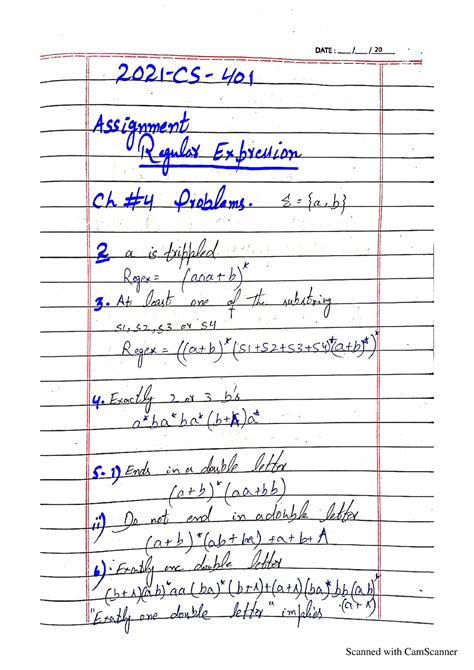 DATE: __/__/20__
2021-CS-401
Assignment
Regular Expression
Ch #4 Problems. Σ = {a, b}
2 a is trippled
Regex = (aaa+b)*
3. At least one of the substring
S1, S2, S3 or S4
Regex = ((a+b)*(S1+S2+S3+S4)*(a+b)*)*
4. Exactly 2 or 3 b's
a*ba*ba*(b+Λ)a*
5. i) Ends in a double letter
(a+b)*(aa+bb)
ii) Do not end in a double letter
(a+b)*(ab+ba)+a+b+Λ
6) Exatly one double letter
(b+Λ)(ab)*aa(ba)*(b+Λ)+(a+Λ)(ba)*bb(ab)*
.(a+Λ)
"Exatly one double letter" implies
Scanned with CamScanner